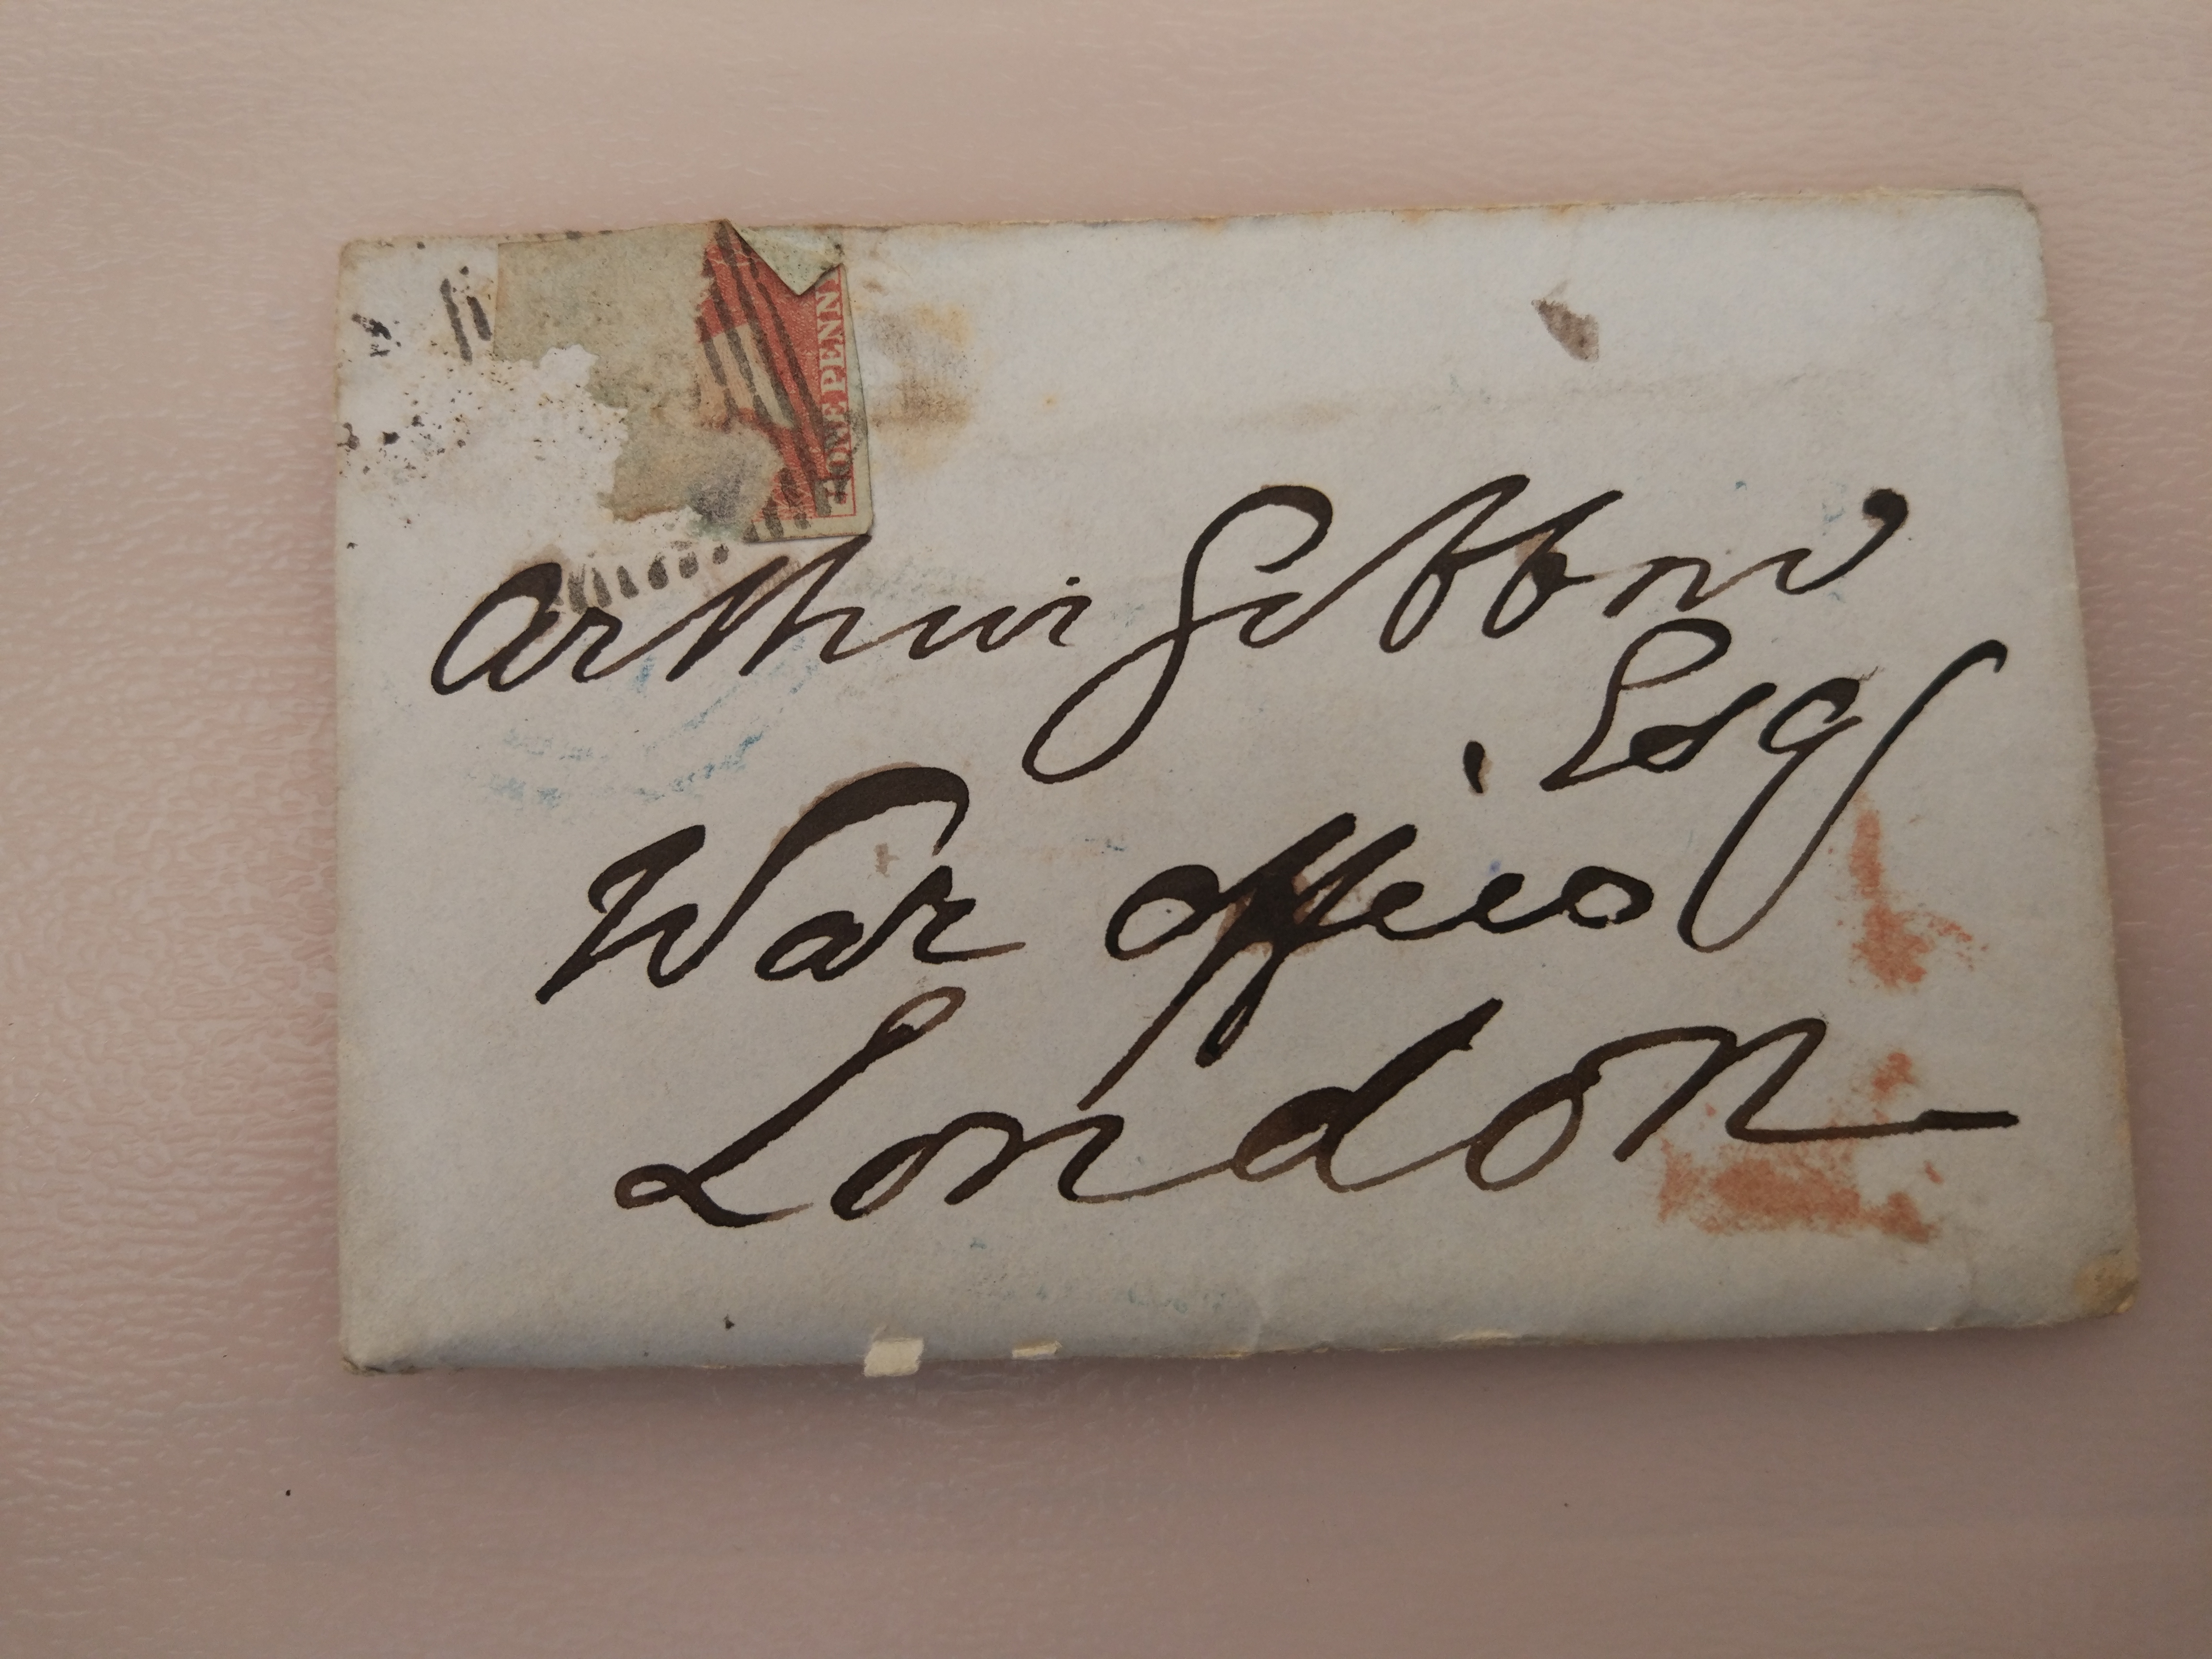 ONE PENNY
Arthur Gibbon
Esq
War Office
London